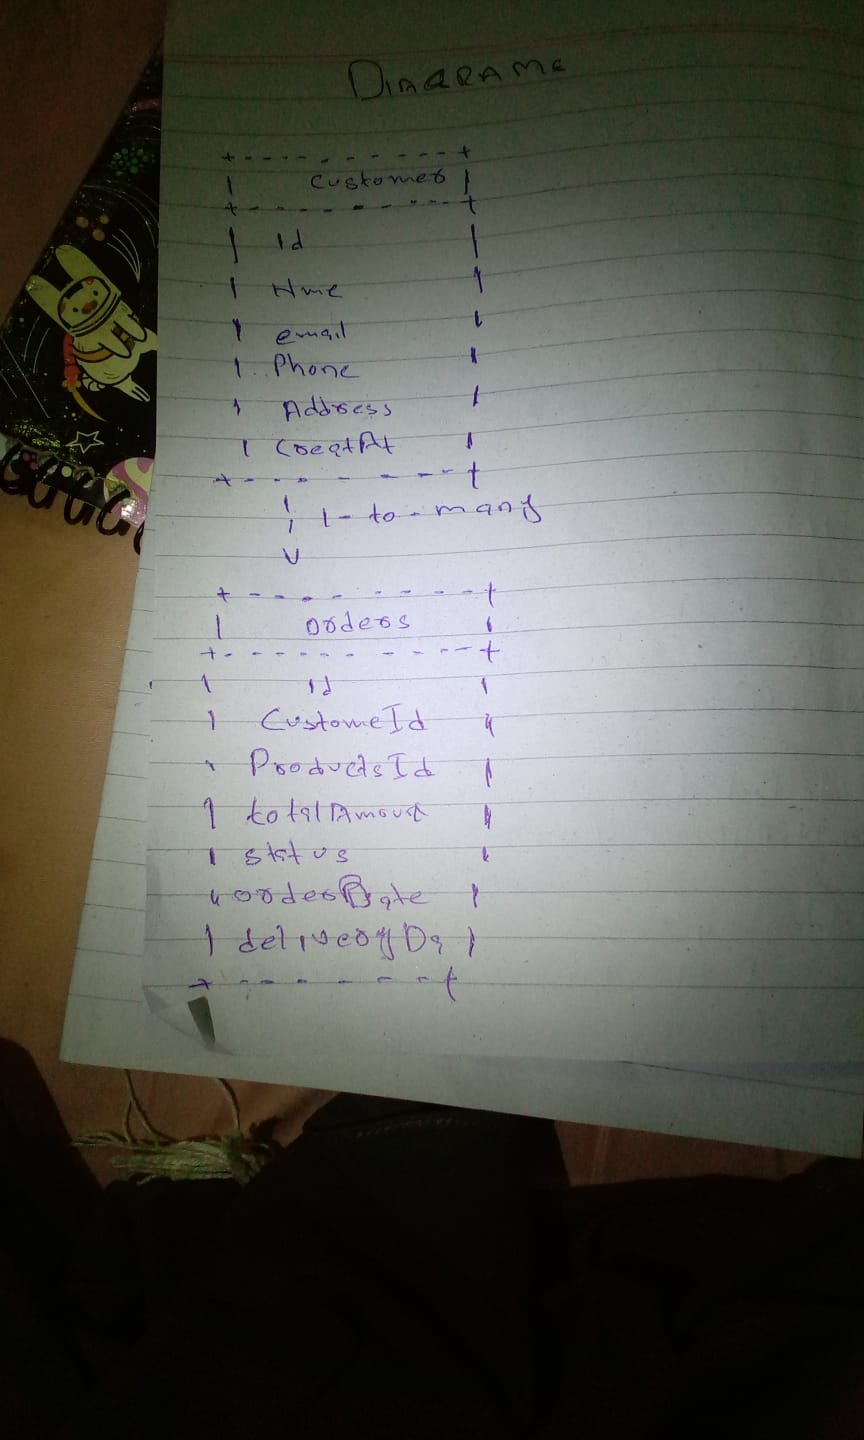 DIAGRAME
+----------+
| Customer |
+----------+
| Id |
| Nme |
| email |
| Phone |
| Address |
| CreatAt |
+-------+
| 1-to-many
v
+--------+
| orders |
+----------+
| Id |
| CustomeId |
| ProductsId |
| totalAmount |
| status |
| orderDate |
| deliveryDa |
+------+